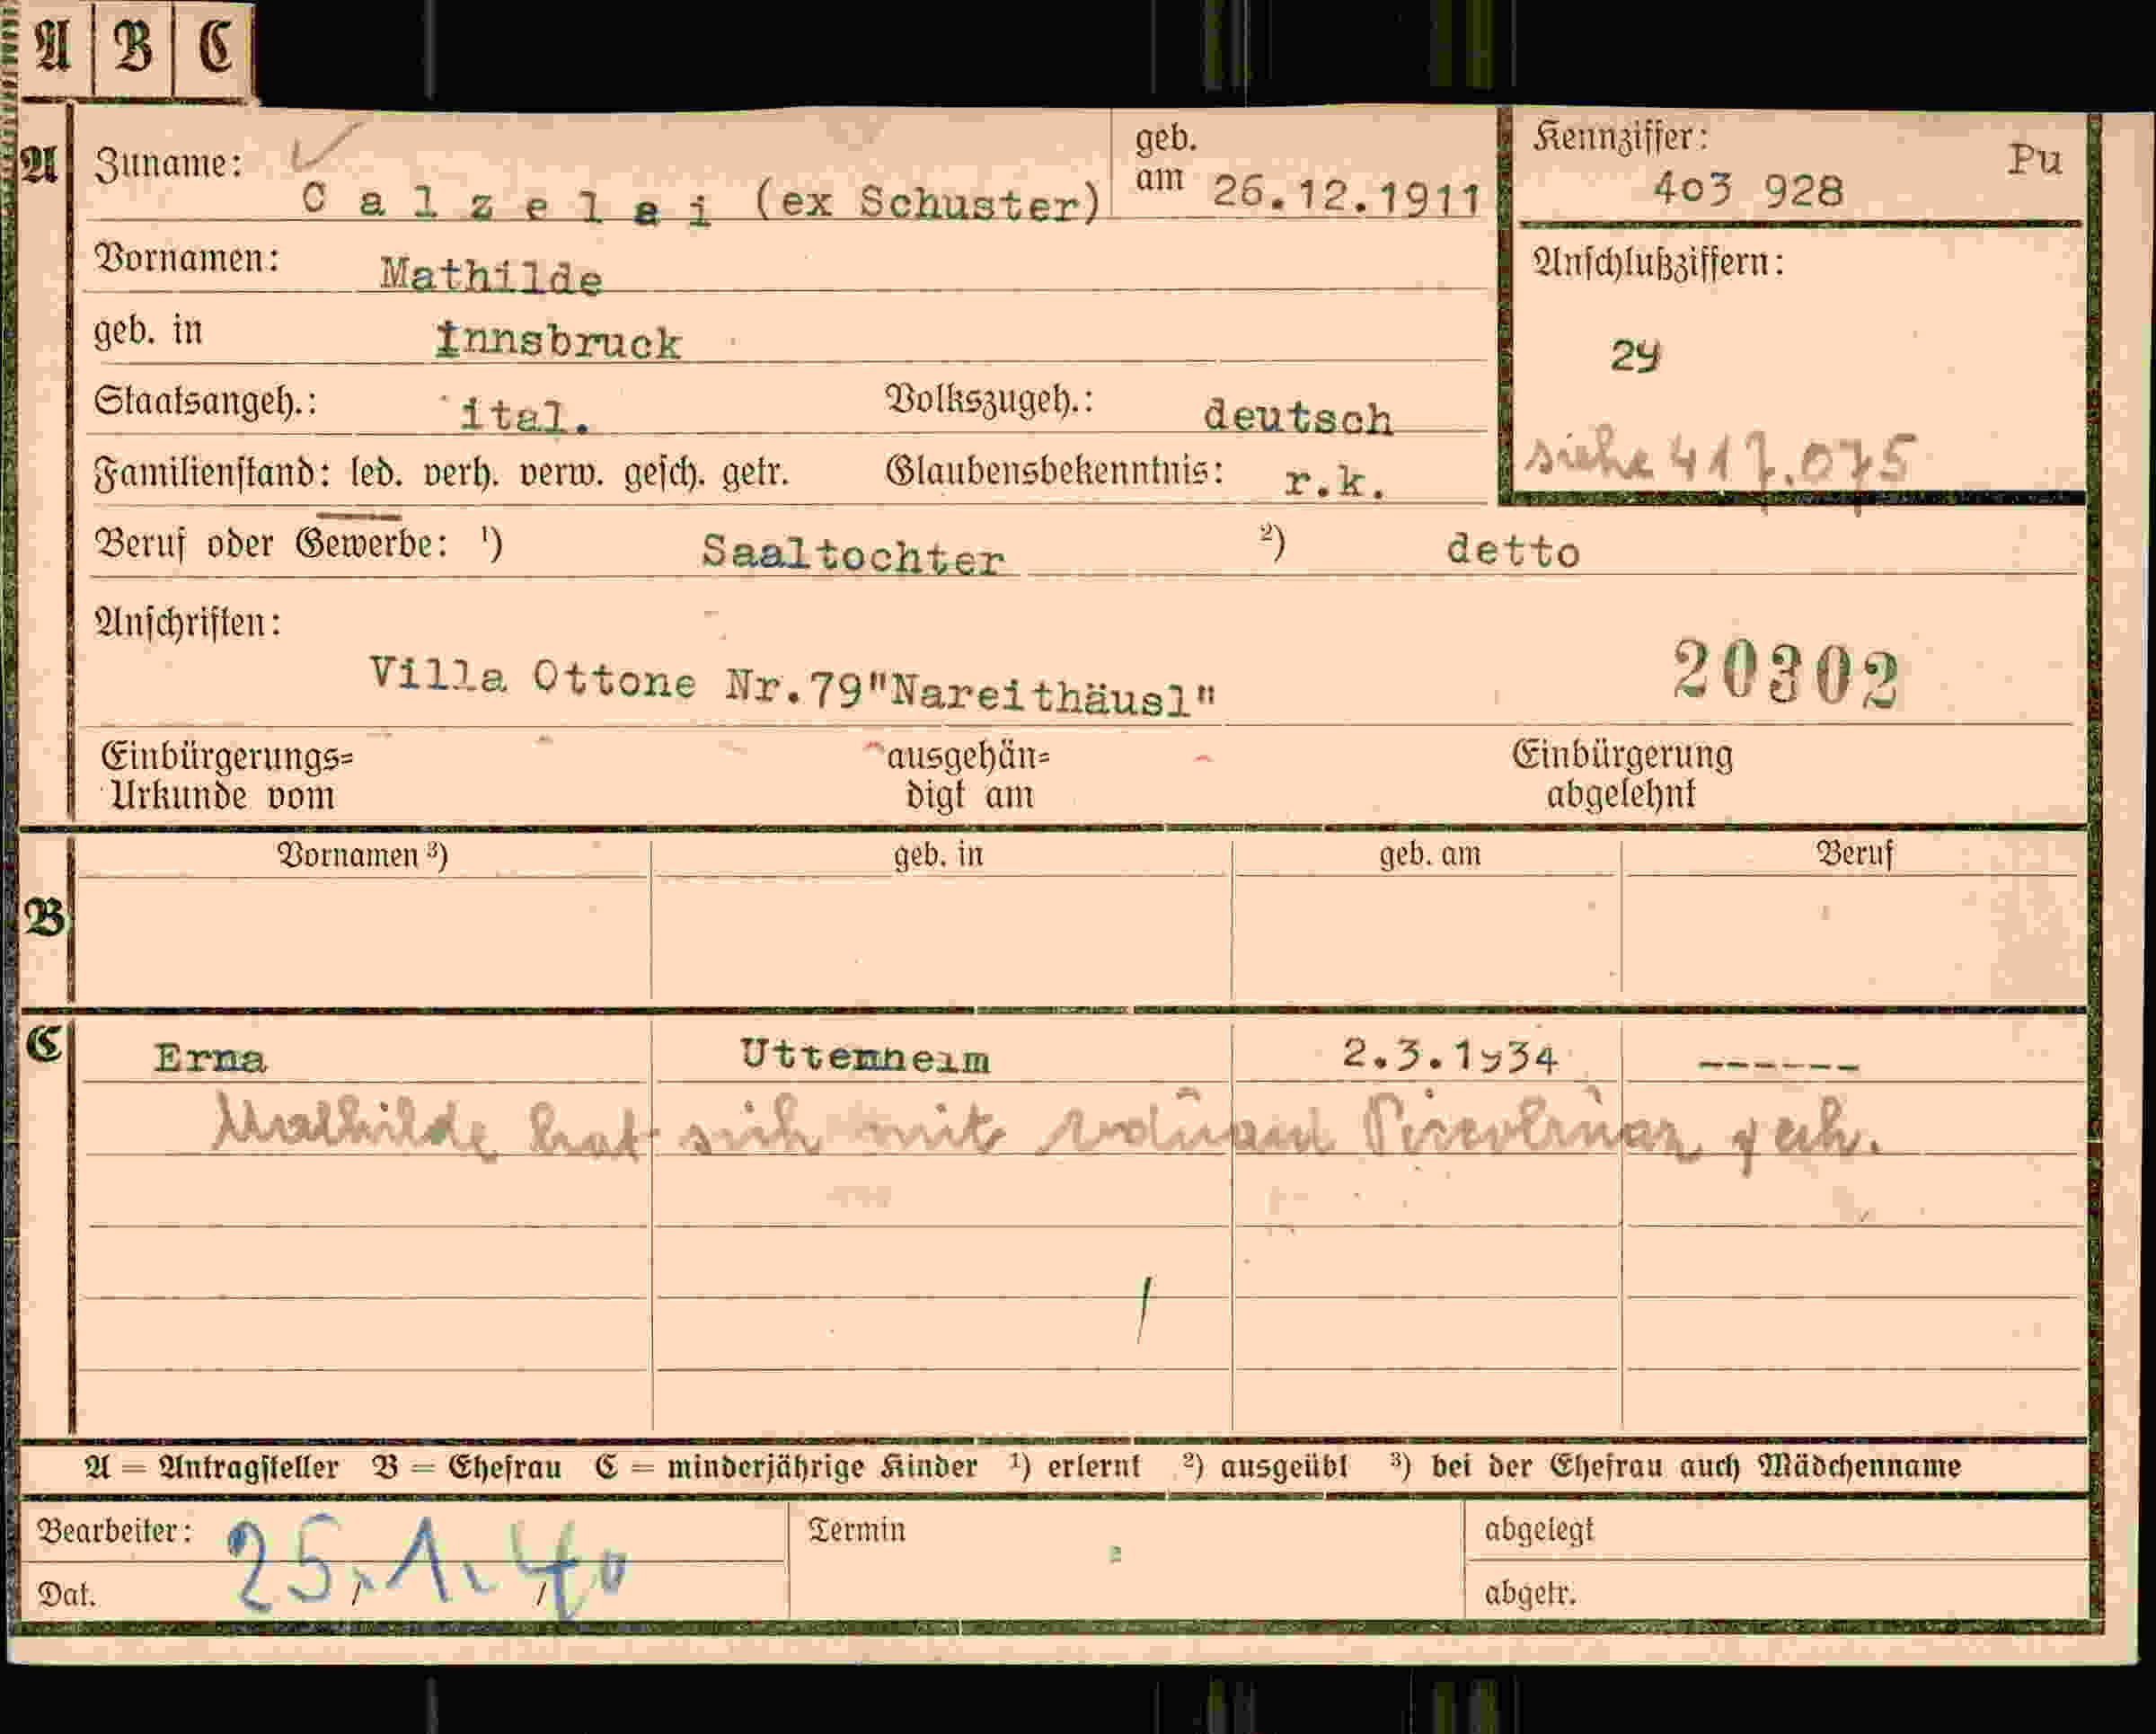 A B C
A Zuname: C a l z e l a i (ex Schuster) geb. am 26.12.1911 Kennziffer: 403 928 Pu
Vornamen: Mathilde Anschlußziffern:
geb. in Innsbruck 29
Staatsangeh.: ital. Volkszugeh.: deutsch
siehe 417.075
Familienstand: led. verh. verw. gesch. getr. Glaubensbekenntnis: r.k.
Beruf oder Gewerbe: ¹) Saaltochter ²) detto
Anschriften:
Villa Ottone Nr.79"Nareithäusl" 20302
Einbürgerungs= ausgehän= Einbürgerung
Urkunde vom digt am abgelehnt
Vornamen ³) geb. in geb. am Beruf
B
C Erna Uttenheim 2.3.1934 ------
Mathilde hat sich mit
A = Antragsteller B = Ehefrau C = minderjährige Kinder ¹) erlernt ²) ausgeübt ³) bei der Ehefrau auch Mädchenname
Bearbeiter: Termin abgelegt
25.1.40
Dat. / / abgetr.